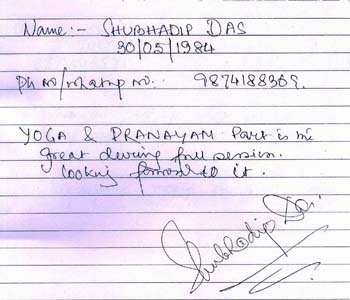 Name:- SHUBHADIP DAS
30/05/1984
Ph no/whatsap no. 9874188309.
YOGA & PRANAYAM Part is the
great during full session.
Looking forward to it.
Shubhadip Das.